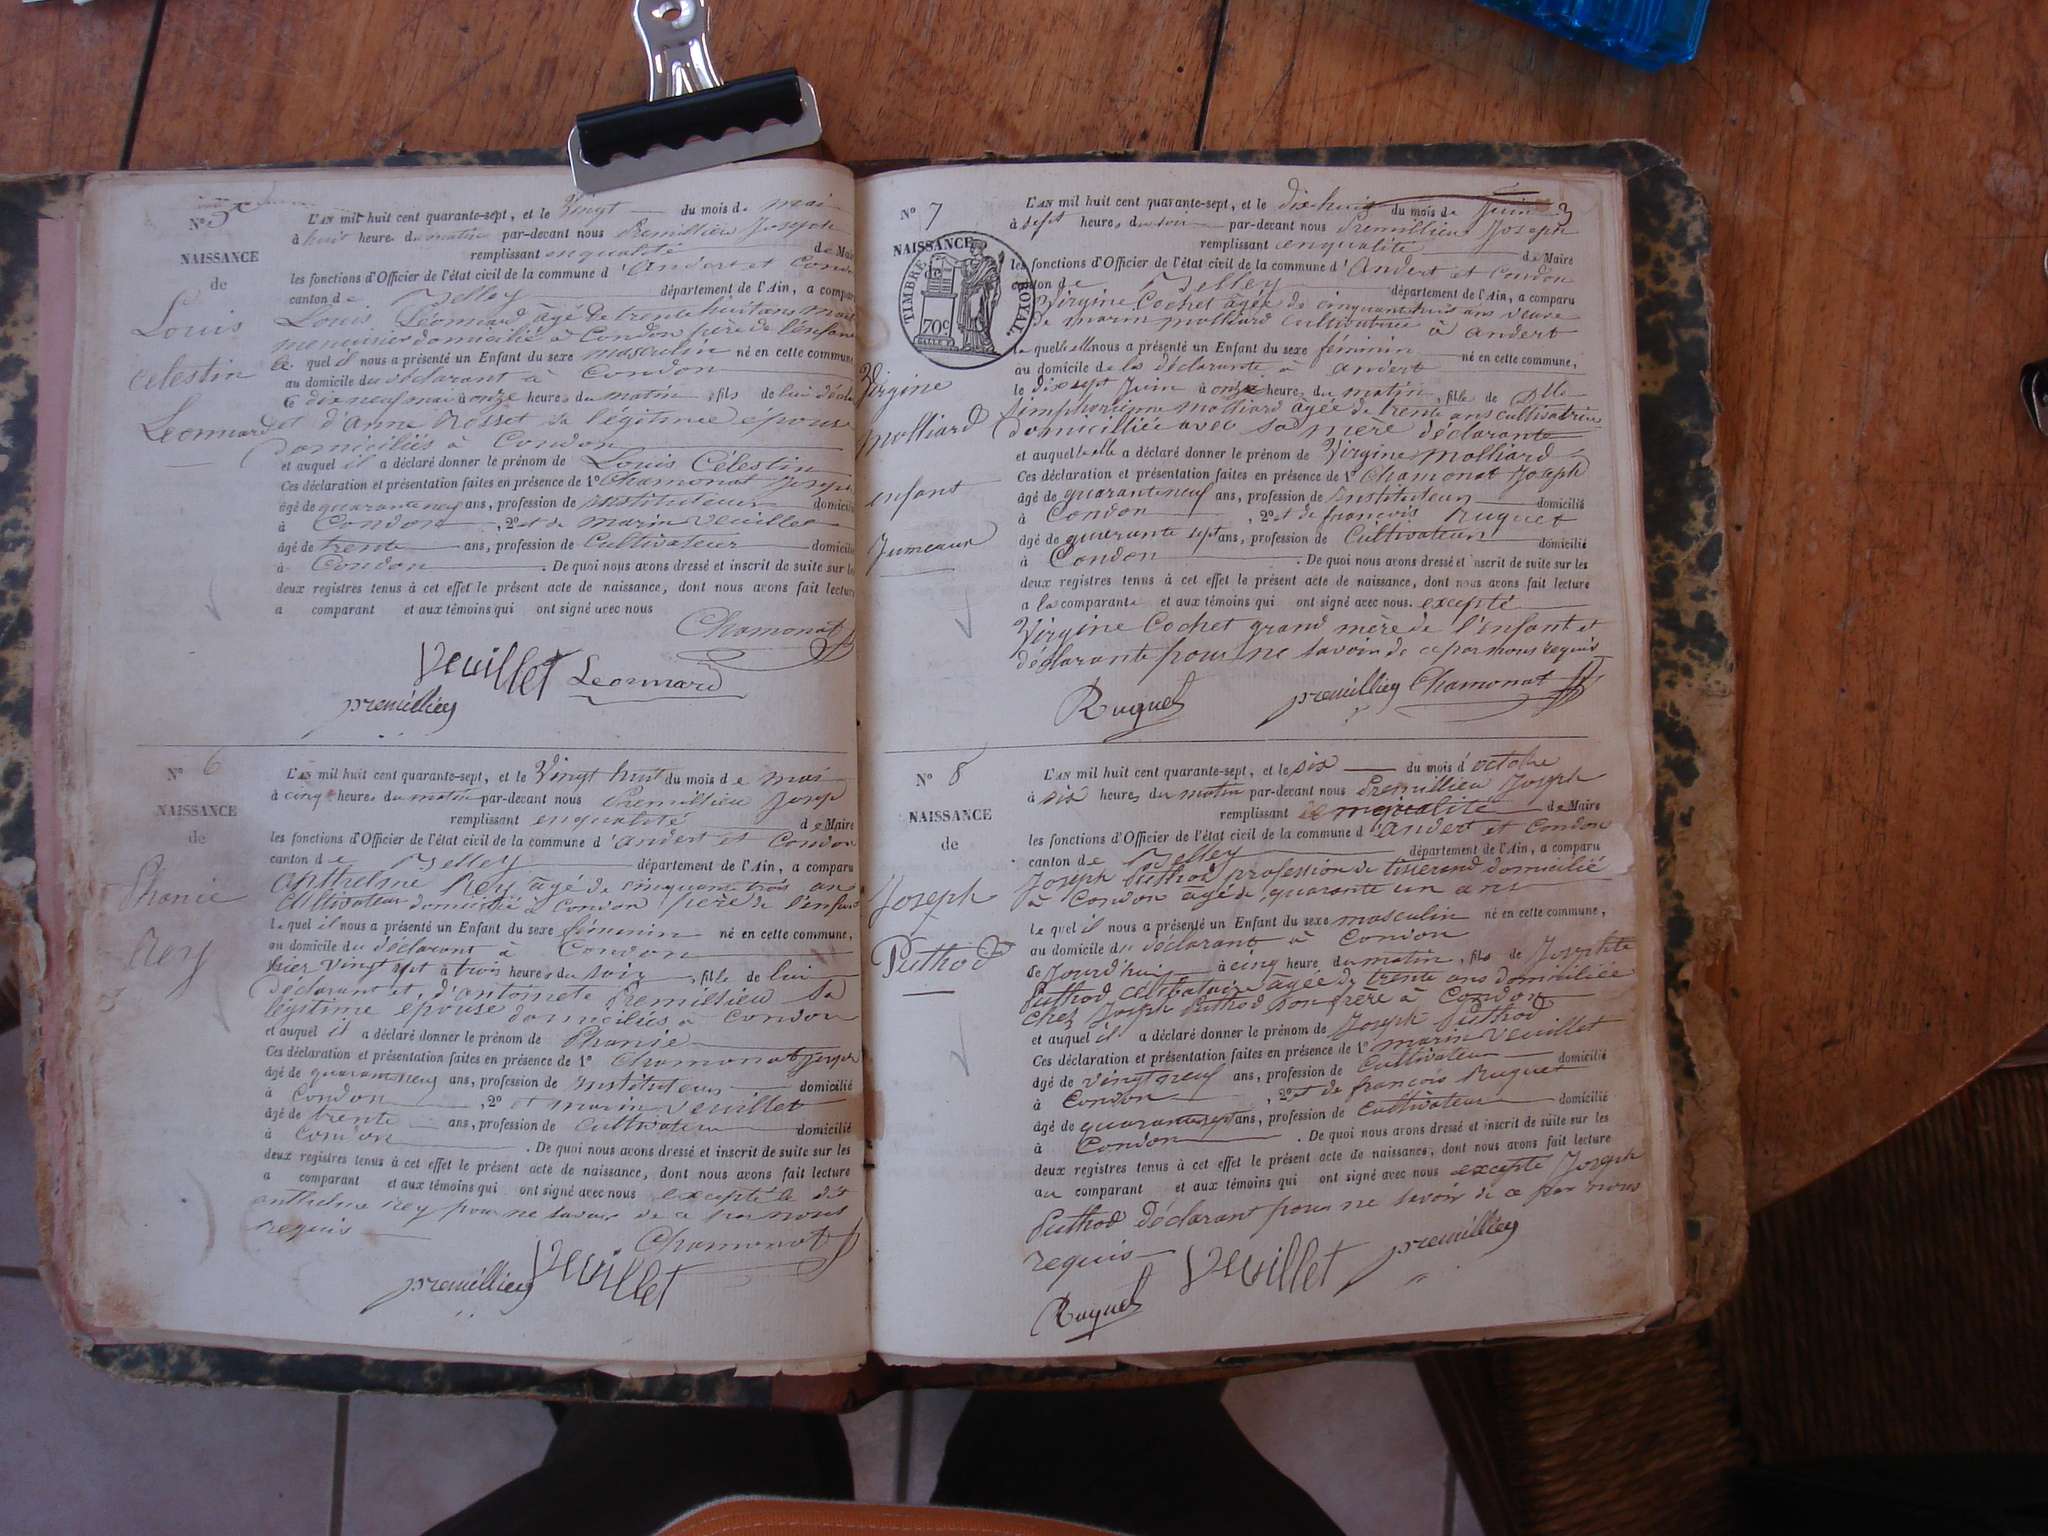 N° 5
NAISSANCE
de
Louis
Celestin
Léonnard
L'AN mil huit cent quarante-sept, et le Vingt du mois de mai
à huit heures du matin par-devant nous Premillieu Joseph
remplissant enqualité de Maire
les fonctions d'Officier de l'état civil de la commune d'Andert et Condon
canton de Belley département de l'Ain, a comparu
Louis Léonnard âgé de trente huit ans
menuisier domicilié à Condon père de l'enfant
le quel il nous a présenté un Enfant du sexe masculin né en cette commune
au domicile du déclarant à Condon
le dix neuf mai à onze heures du matin, fils de lui
et d'Anne Rosset sa légitime épouse
domiciliés à Condon
et auquel il a déclaré donner le prénom de Louis Célestin
Ces déclaration et présentation faites en présence de 1° Chamonat Joseph
âgé de quarante neuf ans, profession de instituteur domicilié
à Condon, 2° et de marin Veuillet
âgé de trente ans, profession de Cultivateur domicilié
à Condon. De quoi nous avons dressé et inscrit de suite sur les
deux registres tenus à cet effet le présent acte de naissance, dont nous avons fait lecture
a comparant et aux témoins qui ont signé avec nous
Chamonat
Veuillet Leonnard
premillieu
N° 6
NAISSANCE
de
Phanie
Rey
L'AN mil huit cent quarante-sept, et le Vingt huit du mois de mai
à cinq heures du matin par-devant nous Premillieu Joseph
remplissant enqualité de Maire
les fonctions d'Officier de l'état civil de la commune d'Andert et Condon
canton de Belley département de l'Ain, a comparu
Anthelme Rey âgé de cinquante trois ans
Cultivateur domicilié à Condon père de l'enfant
le quel il nous a présenté un Enfant du sexe féminin né en cette commune,
au domicile du déclarant à Condon
hier vingt sept à trois heures du soir, fille de lui
déclarant et d'antoinete Premillieu sa
légitime épouse domiciliés à Condon
et auquel il a déclaré donner le prénom de Phanie
Ces déclaration et présentation faites en présence de 1° Chamonat Joseph
âgé de quarante neuf ans, profession de instituteur domicilié
à Condon, 2° et marin Veuillet
âgé de trente ans, profession de Cultivateur domicilié
à Condon. De quoi nous avons dressé et inscrit de suite sur les
deux registres tenus à cet effet le présent acte de naissance, dont nous avons fait lecture
a comparant et aux témoins qui ont signé avec nous excepté le dit
anthelme Rey pour ne savoir de ce par nous
requis
Chamonat
premillieu Veuillet
N° 7
NAISSANCE
de
TIMBRE ROYAL
70c
Virgine
Molliard
enfant
Jumeaux
L'AN mil huit cent quarante-sept, et le dix-huit du mois de Juin 3
à sept heures du soir par-devant nous Premillieu Joseph
remplissant enqualité de Maire
les fonctions d'Officier de l'état civil de la commune d'Andert et Condon
canton de Belley département de l'Ain, a comparu
Virgine Cochet âgée de cinquante huit ans veuve
de marin molliard Cultivatrice à andert
le quelle elle nous a présenté un Enfant du sexe féminin né en cette commune,
au domicile de la déclarante à andert
le dix sept Juin à onze heures du matin, fille de Dlle
Simphorienne molliard âgée de trente ans cultivatrice
domiciliée avec sa mère déclarante
et auquel elle a déclaré donner le prénom de Virgine molliard
Ces déclaration et présentation faites en présence de 1° Chamonat Joseph
âgé de quarante neuf ans, profession de instituteur domicilié
à Condon, 2° et de françois Ruguet
âgé de quarante sept ans, profession de Cultivateur domicilié
à Condon. De quoi nous avons dressé et inscrit de suite sur les
deux registres tenus à cet effet le présent acte de naissance, dont nous avons fait lecture
a la comparante et aux témoins qui ont signé avec nous. excepté
Virgine Cochet grand mère de l'enfant et
déclarante pour ne savoir de ce par nous requis
Ruguet premillieu Chamonat
N° 8
NAISSANCE
de
Joseph
Puthod
L'AN mil huit cent quarante-sept, et le six du mois d'octobre
à six heures du matin par-devant nous Premillieu Joseph
remplissant enqualité de Maire
les fonctions d'Officier de l'état civil de la commune d'Andert et Condon
canton de Belley département de l'Ain, a comparu
Joseph Puthod profession de tisserand domicilié
à Condon âgé de quarante un ans
le quel il nous a présenté un Enfant du sexe masculin né en cette commune,
au domicile du déclarant à Condon
le Jourd'hui à cinq heure du matin, fils de Josephte
Puthod célibataire âgée de trente ans domiciliée
chez Joseph Puthod son frère à Condon
et auquel il a déclaré donner le prénom de Joseph Puthod
Ces déclaration et présentation faites en présence de 1° marin Veuillet
âgé de vingt neuf ans, profession de Cultivateur domicilié
à Condon, 2° et de françois Ruguet
âgé de quarante sept ans, profession de Cultivateur domicilié
à Condon. De quoi nous avons dressé et inscrit de suite sur les
deux registres tenus à cet effet le présent acte de naissance, dont nous avons fait lecture
au comparant et aux témoins qui ont signé avec nous excepté Joseph
Puthod déclarant pour ne savoir de ce par nous
requis
Veuillet premillieu
Ruguet